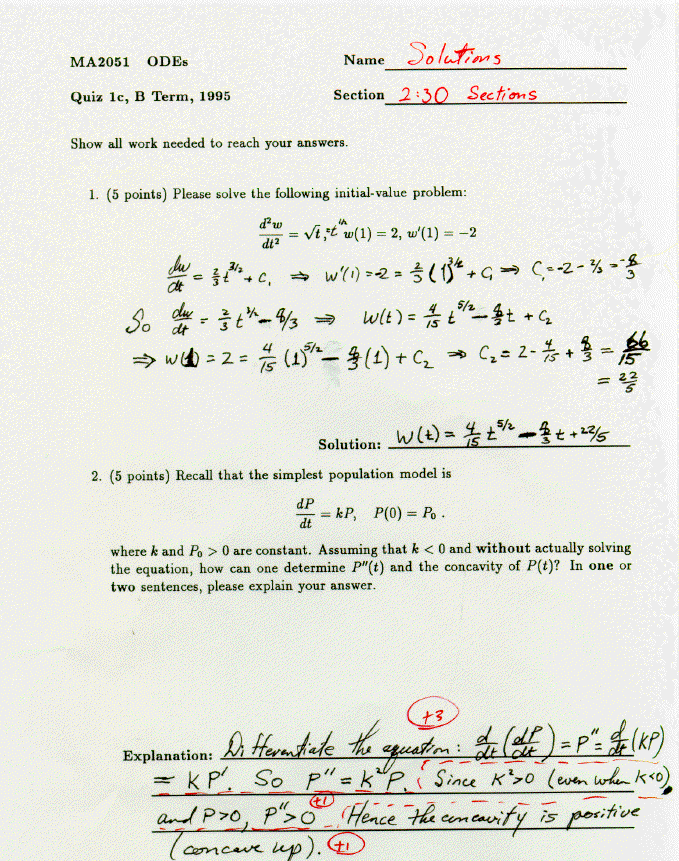 MA2051 ODEs Name Solutions
Quiz 1c, B Term, 1995 Section 2:30 Sections
Show all work needed to reach your answers.
1. (5 points) Please solve the following initial-value problem:
d²w/dt² = √t, w(1) = 2, w'(1) = -2
dw/dt = 2/3 t^3/2 + C₁ ⇒ w'(1) = -2 = 2/3 (1)^3/2 + C₁ ⇒ C₁ = -2 - 2/3 = -8/3
So dw/dt = 2/3 t^3/2 - 8/3 ⇒ W(t) = 4/15 t^5/2 - 8/3 t + C₂
⇒ W(1) = 2 = 4/15 (1)^5/2 - 8/3 (1) + C₂ ⇒ C₂ = 2 - 4/15 + 8/3 = 66/15
= 22/5
Solution: W(t) = 4/15 t^5/2 - 8/3 t + 22/5
2. (5 points) Recall that the simplest population model is
dP/dt = kP, P(0) = P₀ .
where k and P₀ > 0 are constant. Assuming that k < 0 and without actually solving
the equation, how can one determine P''(t) and the concavity of P(t)? In one or
two sentences, please explain your answer.
+3
Explanation: Differentiate the equation: d/dt (dP/dt) = P'' = d/dt (KP)
= KP'. So P'' = K²P. (Since K²>0 (even when K<0),
and P>0, P''>0 +1 (Hence the concavity is positive
(concave up). +1